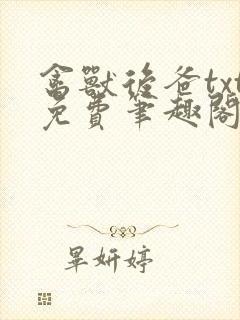 禽獸後爸txt
免費筆趣閣
畢妍婷